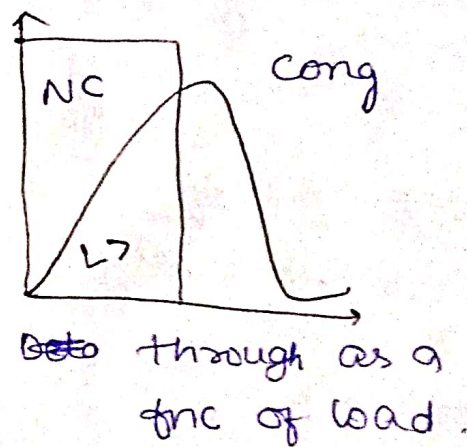 NC
Cong
L7
through as a
fnc of load.